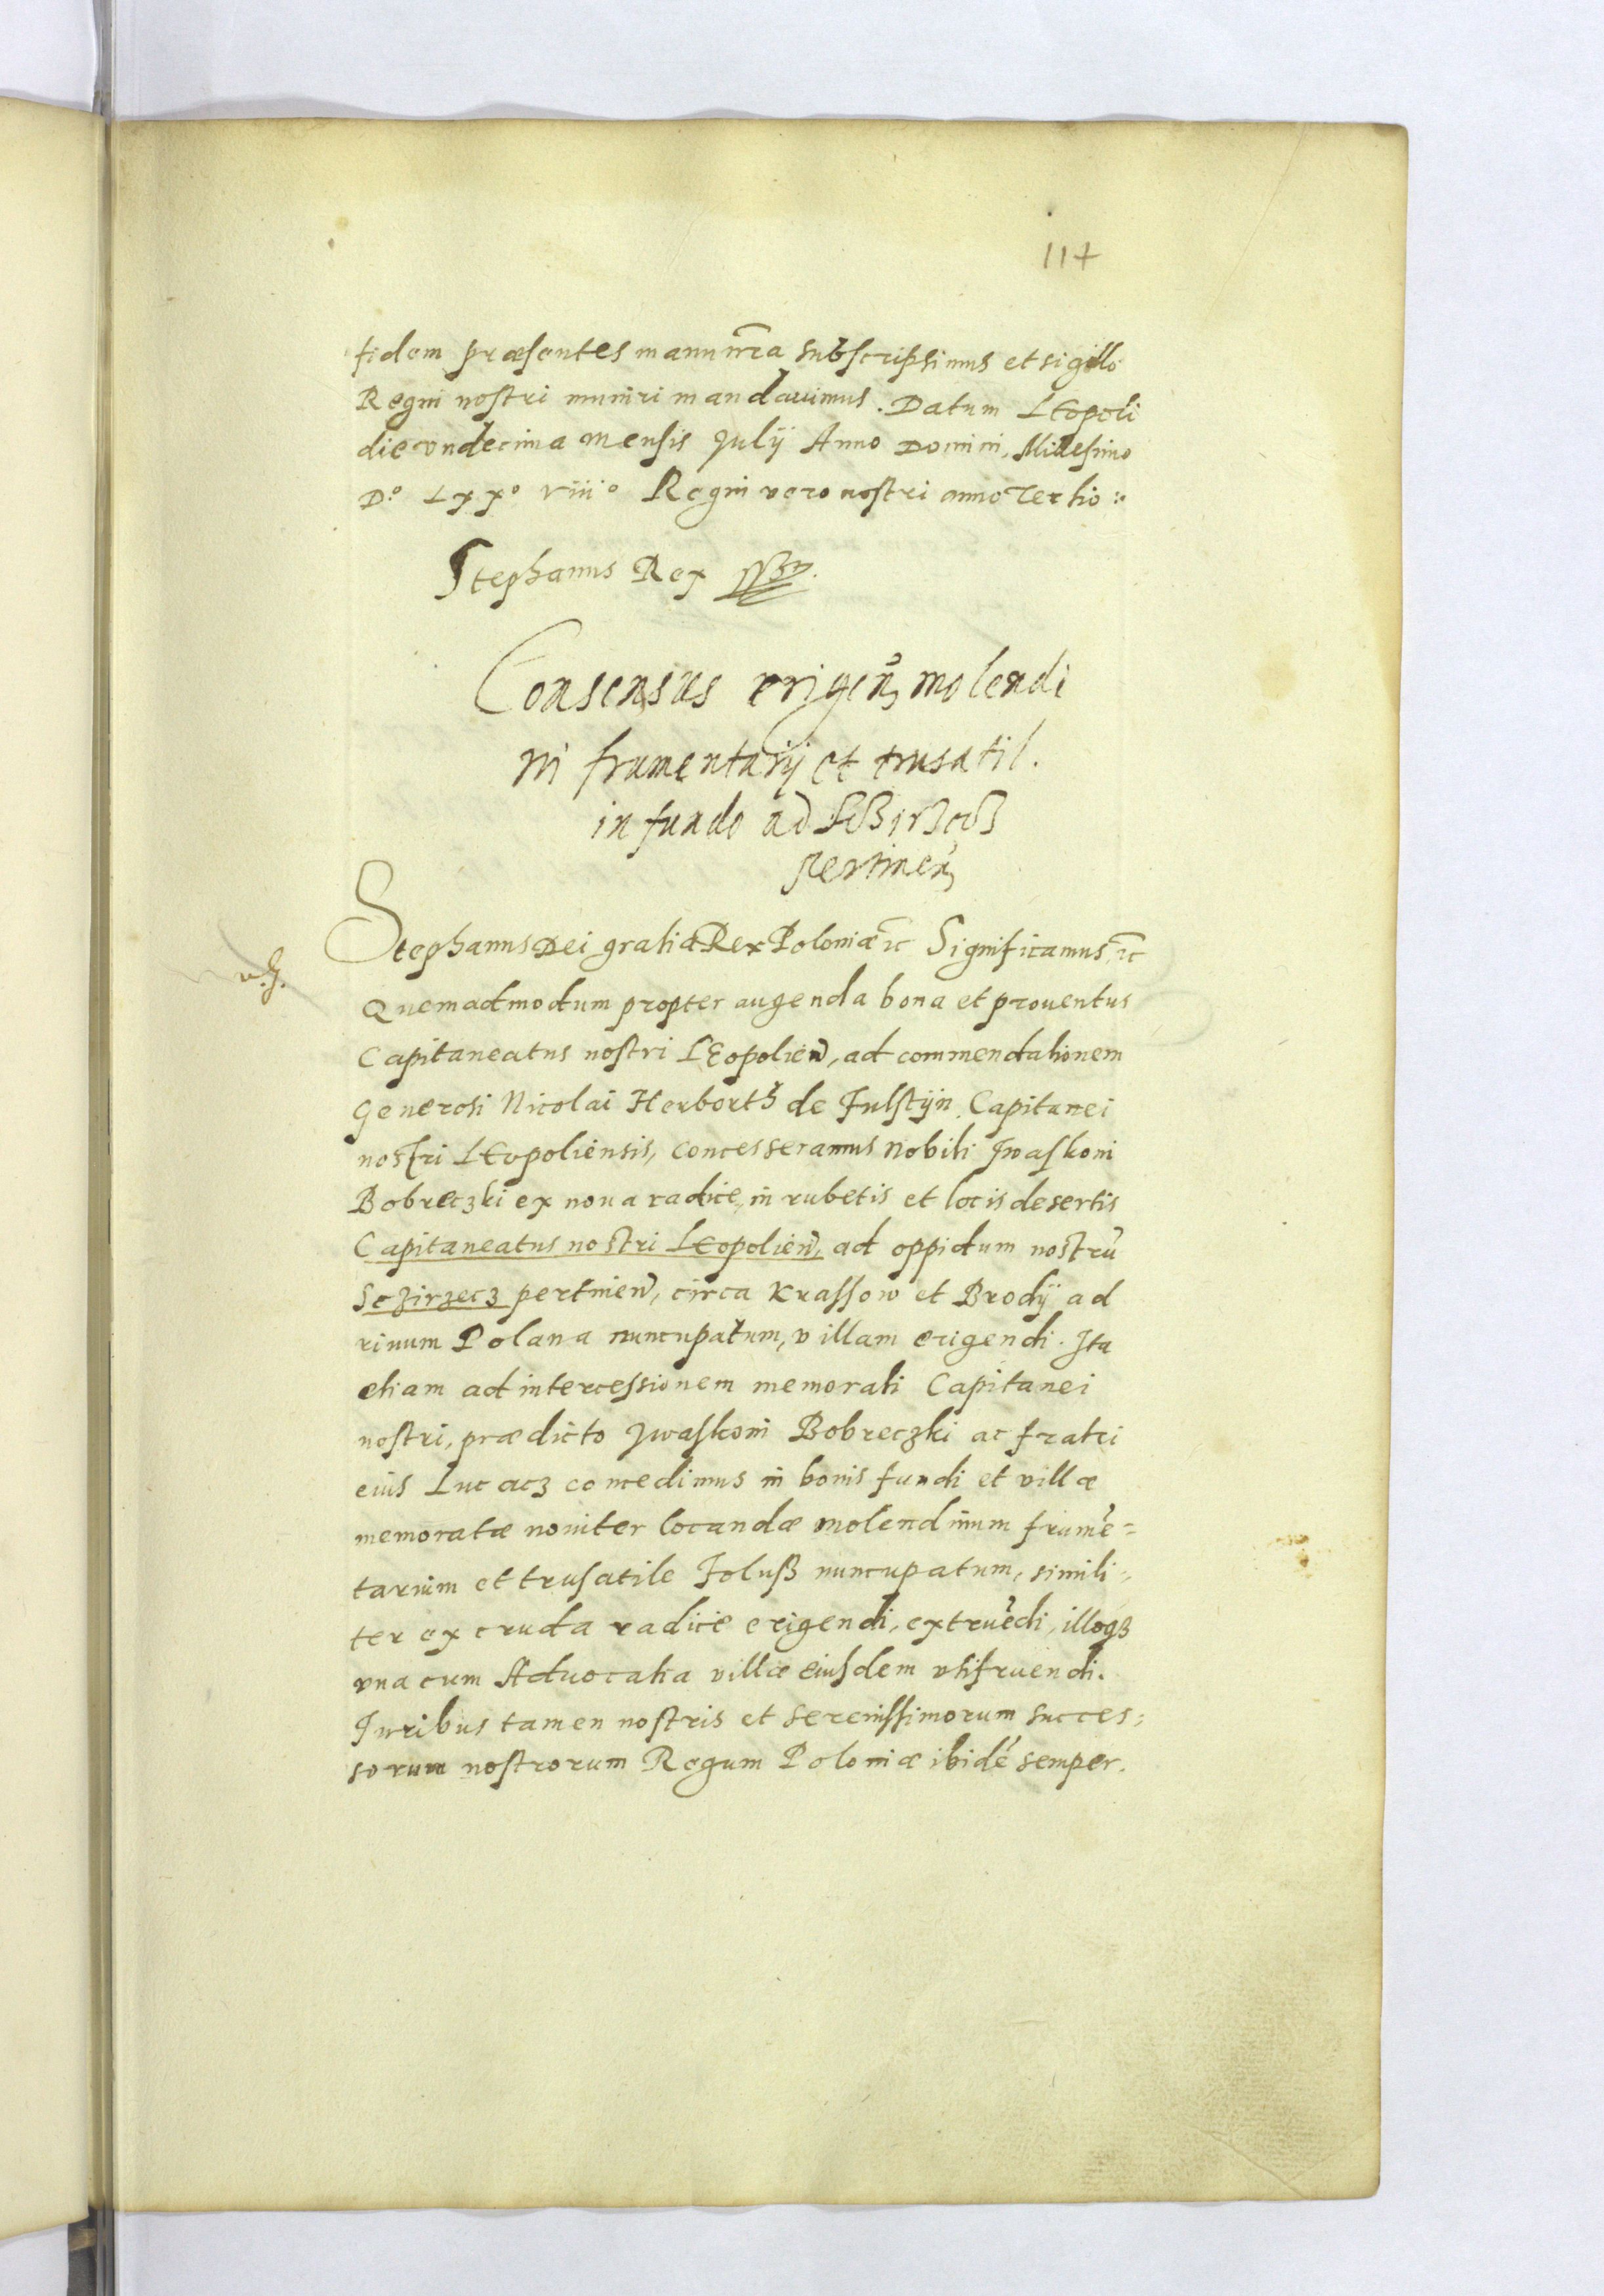 117
fidem præsentes manu nr̃a subscripsimus et sigillo
Regni nostri muniri mandavimus. Datum LEopoli
die vndecima mensis Julij Anno Domini, Millesimo
D.º Lxxº viiiº Regni vero nostri anno Tertio :.
Stephanus Rex
Consensus erigen̄ molendi
ni frumentarij et trusatil.
in fundo ad Sczirzecz
pertinen̄
Stephanus Dei gratia Rex Poloniæ ꝛc Significamus, ꝛc
Quemadmodum propter augenda bona et prouentus
Capitaneatus nostri LEopolien̄, ad commendationem
Generosi Nicolai Herborth de Fulstijn Capitanei
nostri LEopoliensis, concesseramus Nobili Jwaskoni
Bobreczki ex noua radice, in rubetis et locis desertis
Capitaneatus nostri LEopolien̄, ad oppidum nostrū
Sczirzecz pertinen̄, circa Krassow et Brodÿ ad
riuum Polana nuncupatum, villam erigendi. Ita
etiam ad intercessionem memorati Capitanei
nostri, prædicto Jwaskoni Bobreczki ac fratri
eius Lucacz concedimus in bonis fundi et villæ
memoratæ nouiter locandæ molendinum frumē=
tarium et trusatile Foluß nuncupatum, simili-
ter ex cruda radice erigendi, extruēdi, illoqȝ
vna cum Aduocatia villæ eiusdem vtifruendi.
Juribus tamen nostris et serenissimorum succes=
sorum nostrorum Regum Poloniæ ibidē semper.